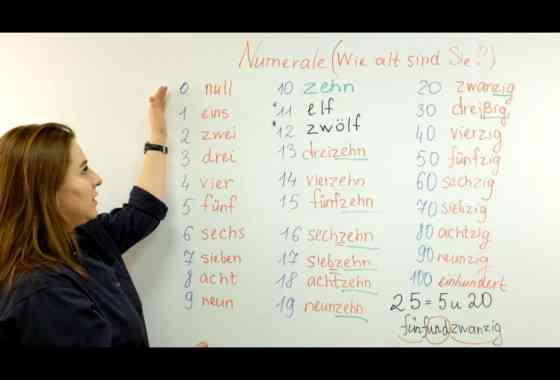 Numerale (Wie alt sind Sie?)
0 null
1 eins
2 zwei
3 drei
4 vier
5 fünf
6 sechs
7 sieben
8 acht
9 neun
10 zehn
*11 elf
*12 zwölf
13 dreizehn
14 vierzehn
15 fünfzehn
16 sechzehn
17 siebzehn
18 achtzehn
19 neunzehn
20 zwanzig
30 dreißig
40 vierzig
50 fünfzig
60 sechzig
70 siebzig
80 achtzig
90 neunzig
100 einhundert
25 = 5 u 20
fünfundzwanzig